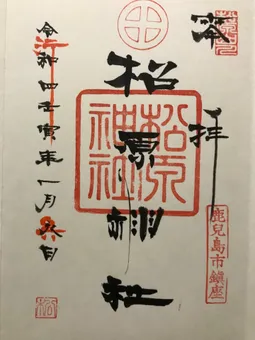 奉拝
鹿兒島市鎮座
松原神社
松原神社
令和四壬寅年一月九日